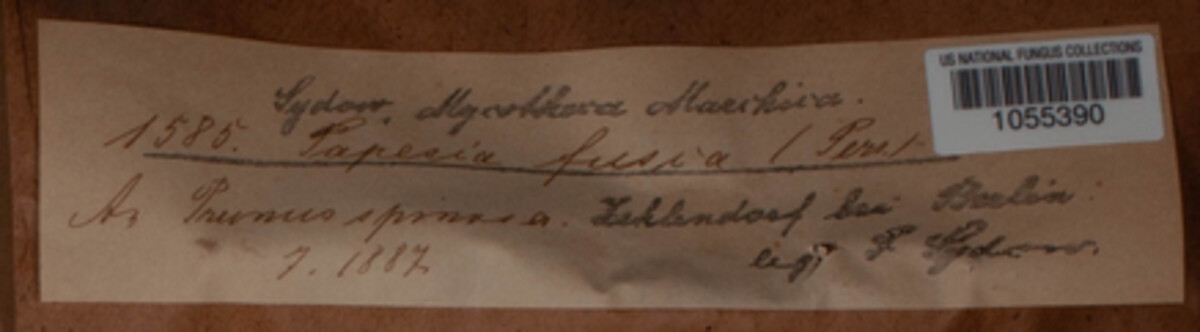 US NATIONAL FUNGUS COLLECTIONS
1055390
Sydow, Mycotheca Marchica.
1585. Tapesia fusia (Pers.)
An Prunus spinosa. Zehlendorf bei Berlin.
7. 1887 leg. P. Sydow.